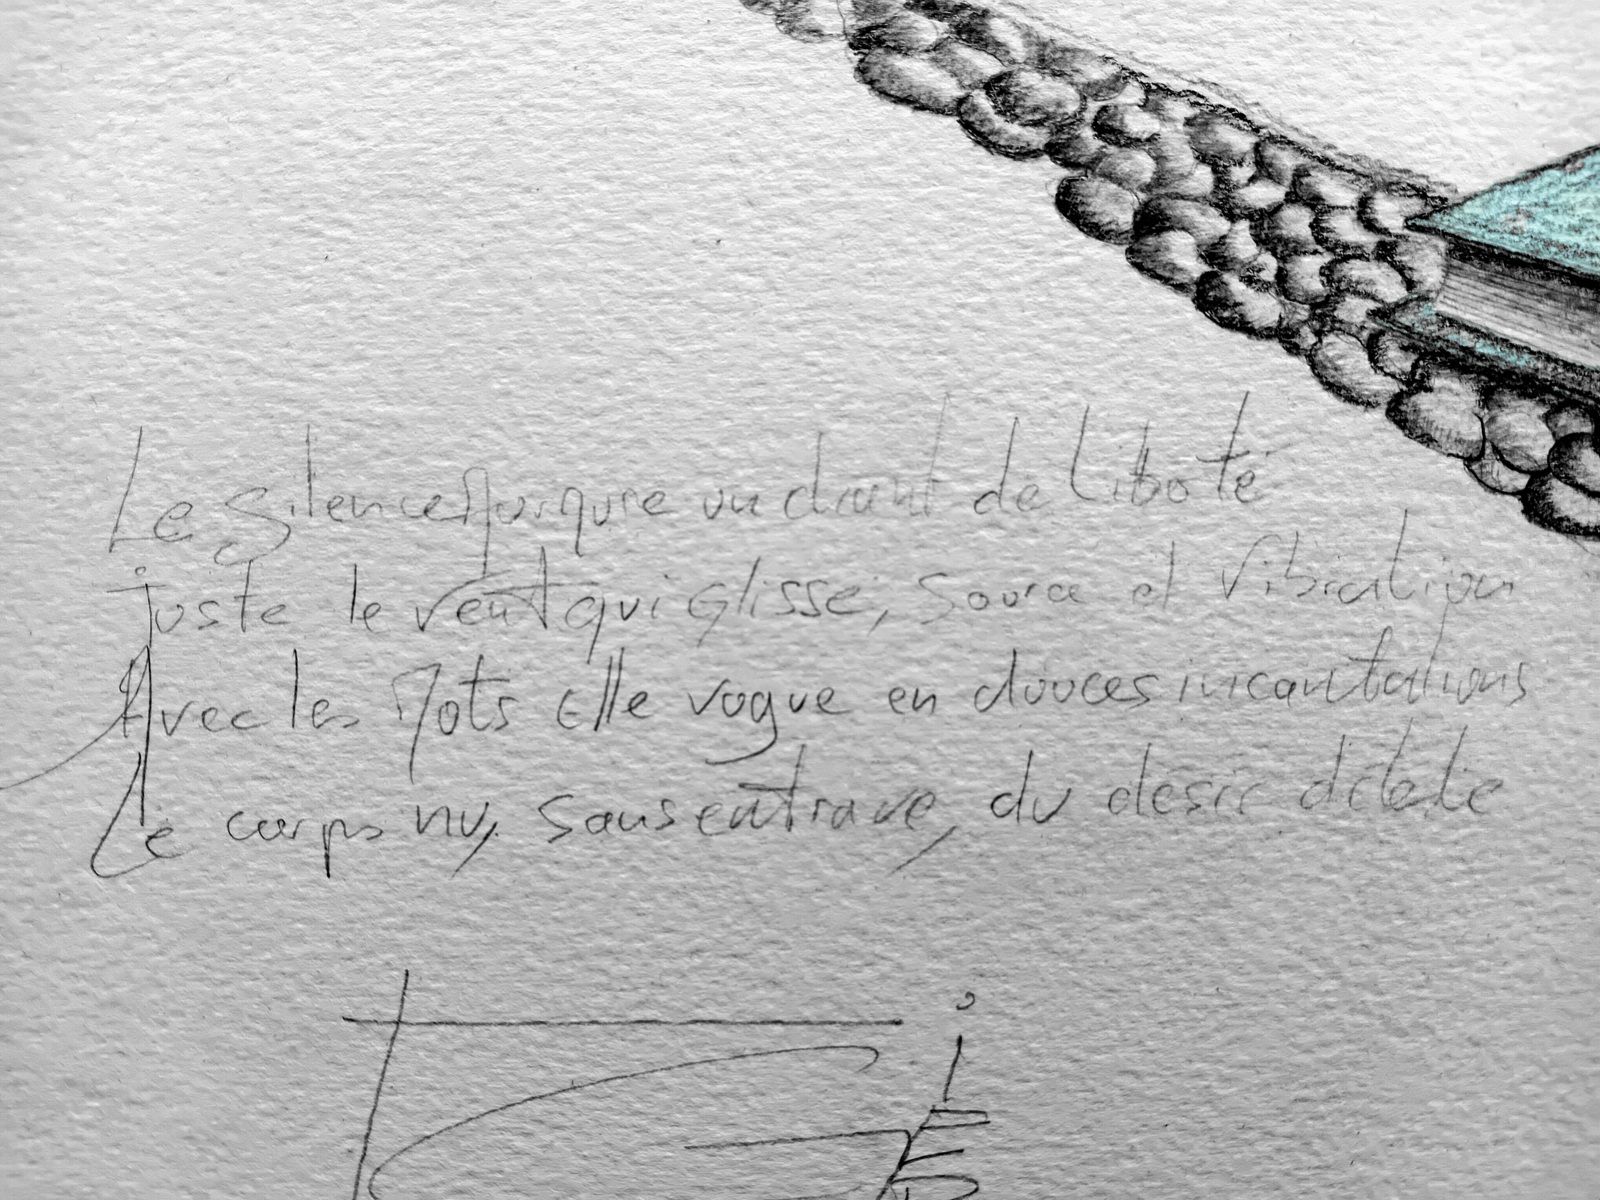 Le silence murmure un chant de liberté
juste le vent qui glisse, source et vibration
Avec les mots elle vogue en douces incantations
Le corps nu, sans entrave, du désir